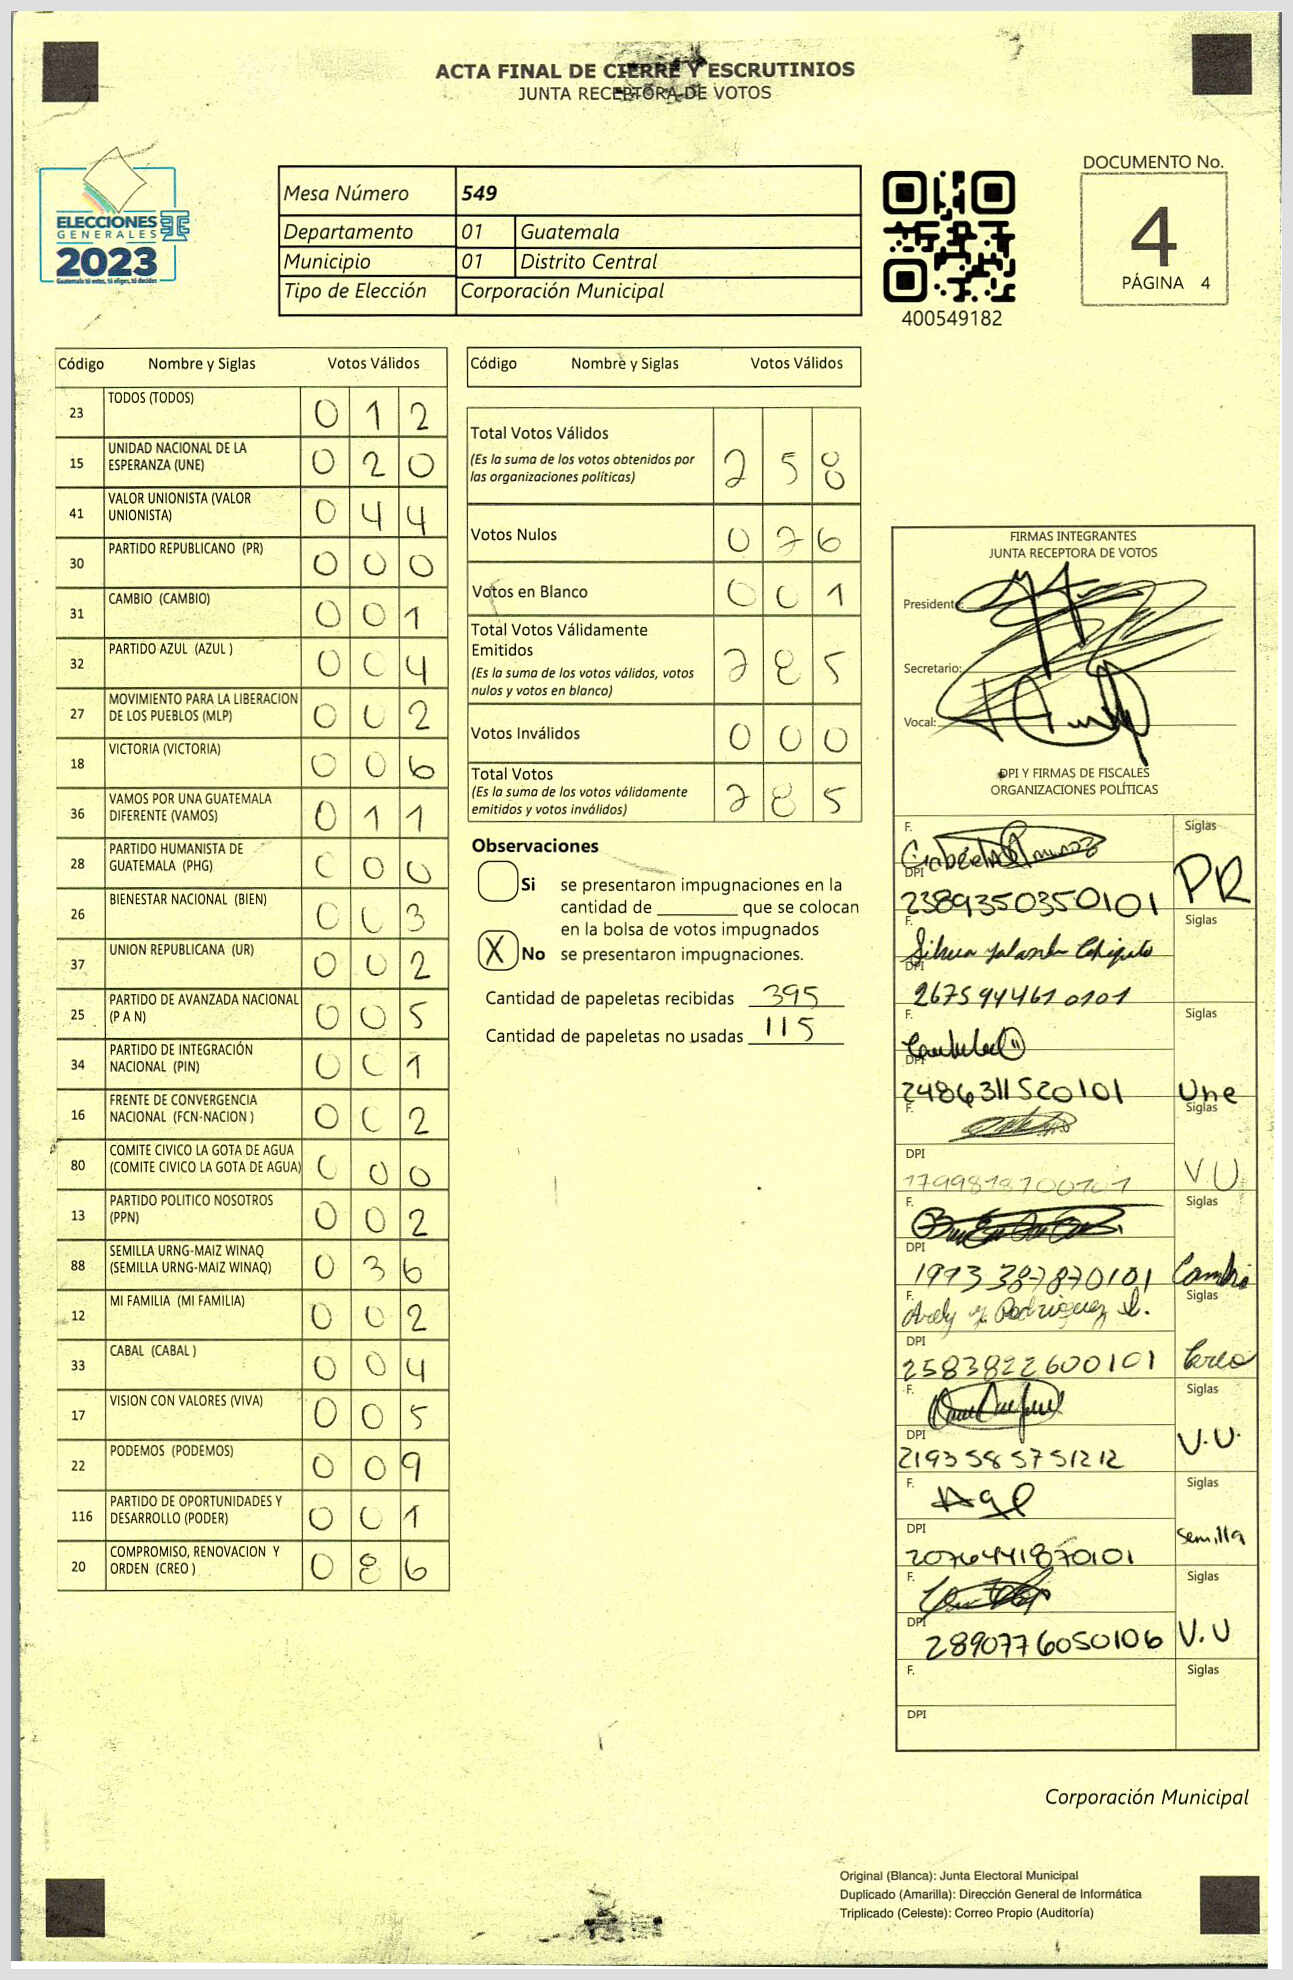 ACTA FINAL DE CIERRE Y ESCRUTINIOS
JUNTA RECEPTORA DE VOTOS
ELECCIONES
GENERALES
2023
Guatemala tú votas, tú eliges, tú decides
Mesa Número 549
Departamento 01 Guatemala
Municipio 01 Distrito Central
Tipo de Elección Corporación Municipal
400549182
DOCUMENTO No.
4
PÁGINA 4
Código Nombre y Siglas Votos Válidos
23 TODOS (TODOS) 0 1 2
15 UNIDAD NACIONAL DE LA ESPERANZA (UNE) 0 2 0
41 VALOR UNIONISTA (VALOR UNIONISTA) 0 4 4
30 PARTIDO REPUBLICANO (PR) 0 0 0
31 CAMBIO (CAMBIO) 0 0 1
32 PARTIDO AZUL (AZUL ) 0 0 4
27 MOVIMIENTO PARA LA LIBERACION DE LOS PUEBLOS (MLP) 0 0 2
18 VICTORIA (VICTORIA) 0 0 6
36 VAMOS POR UNA GUATEMALA DIFERENTE (VAMOS) 0 1 1
28 PARTIDO HUMANISTA DE GUATEMALA (PHG) 0 0 0
26 BIENESTAR NACIONAL (BIEN) 0 0 3
37 UNION REPUBLICANA (UR) 0 0 2
25 PARTIDO DE AVANZADA NACIONAL (P A N) 0 0 5
34 PARTIDO DE INTEGRACIÓN NACIONAL (PIN) 0 0 1
16 FRENTE DE CONVERGENCIA NACIONAL (FCN-NACION ) 0 0 2
80 COMITE CIVICO LA GOTA DE AGUA (COMITE CIVICO LA GOTA DE AGUA) 0 0 0
13 PARTIDO POLITICO NOSOTROS (PPN) 0 0 2
88 SEMILLA URNG-MAIZ WINAQ (SEMILLA URNG-MAIZ WINAQ) 0 3 6
12 MI FAMILIA (MI FAMILIA) 0 0 2
33 CABAL (CABAL ) 0 0 4
17 VISION CON VALORES (VIVA) 0 0 5
22 PODEMOS (PODEMOS) 0 0 9
116 PARTIDO DE OPORTUNIDADES Y DESARROLLO (PODER) 0 0 1
20 COMPROMISO, RENOVACION Y ORDEN (CREO ) 0 8 6
Código Nombre y Siglas Votos Válidos
Total Votos Válidos 2 5 8
(Es la suma de los votos obtenidos por
las organizaciones políticas)
Votos Nulos 0 2 6
Votos en Blanco 0 0 1
Total Votos Válidamente
Emitidos 2 8 5
(Es la suma de los votos válidos, votos
nulos y votos en blanco)
Votos Inválidos 0 0 0
Total Votos 2 8 5
(Es la suma de los votos válidamente
emitidos y votos inválidos)
Observaciones
Si se presentaron impugnaciones en la
cantidad de ________ que se colocan
en la bolsa de votos impugnados
X No se presentaron impugnaciones.
Cantidad de papeletas recibidas 395
Cantidad de papeletas no usadas 115
FIRMAS INTEGRANTES
JUNTA RECEPTORA DE VOTOS
Presidente:
Secretario:
Vocal:
DPI Y FIRMAS DE FISCALES
ORGANIZACIONES POLÍTICAS
F. Siglas
DPI 2389350350101 PR
F. Siglas
DPI 2675944610101
F. Siglas
DPI 2486311520101 Une
F. Siglas
DPI V.U
F. Siglas
DPI 1973387870101 Cambio
F. Arely Rodriguez Siglas
DPI 2583822600101 Creo
F. Siglas
DPI 2193585751212 V.U.
F. Siglas
DPI 2076441870101 Semilla
F. Siglas
DPI 2890776050106 V.U
F. Siglas
DPI
Corporación Municipal
Original (Blanca): Junta Electoral Municipal
Duplicado (Amarilla): Dirección General de Informática
Triplicado (Celeste): Correo Propio (Auditoría)